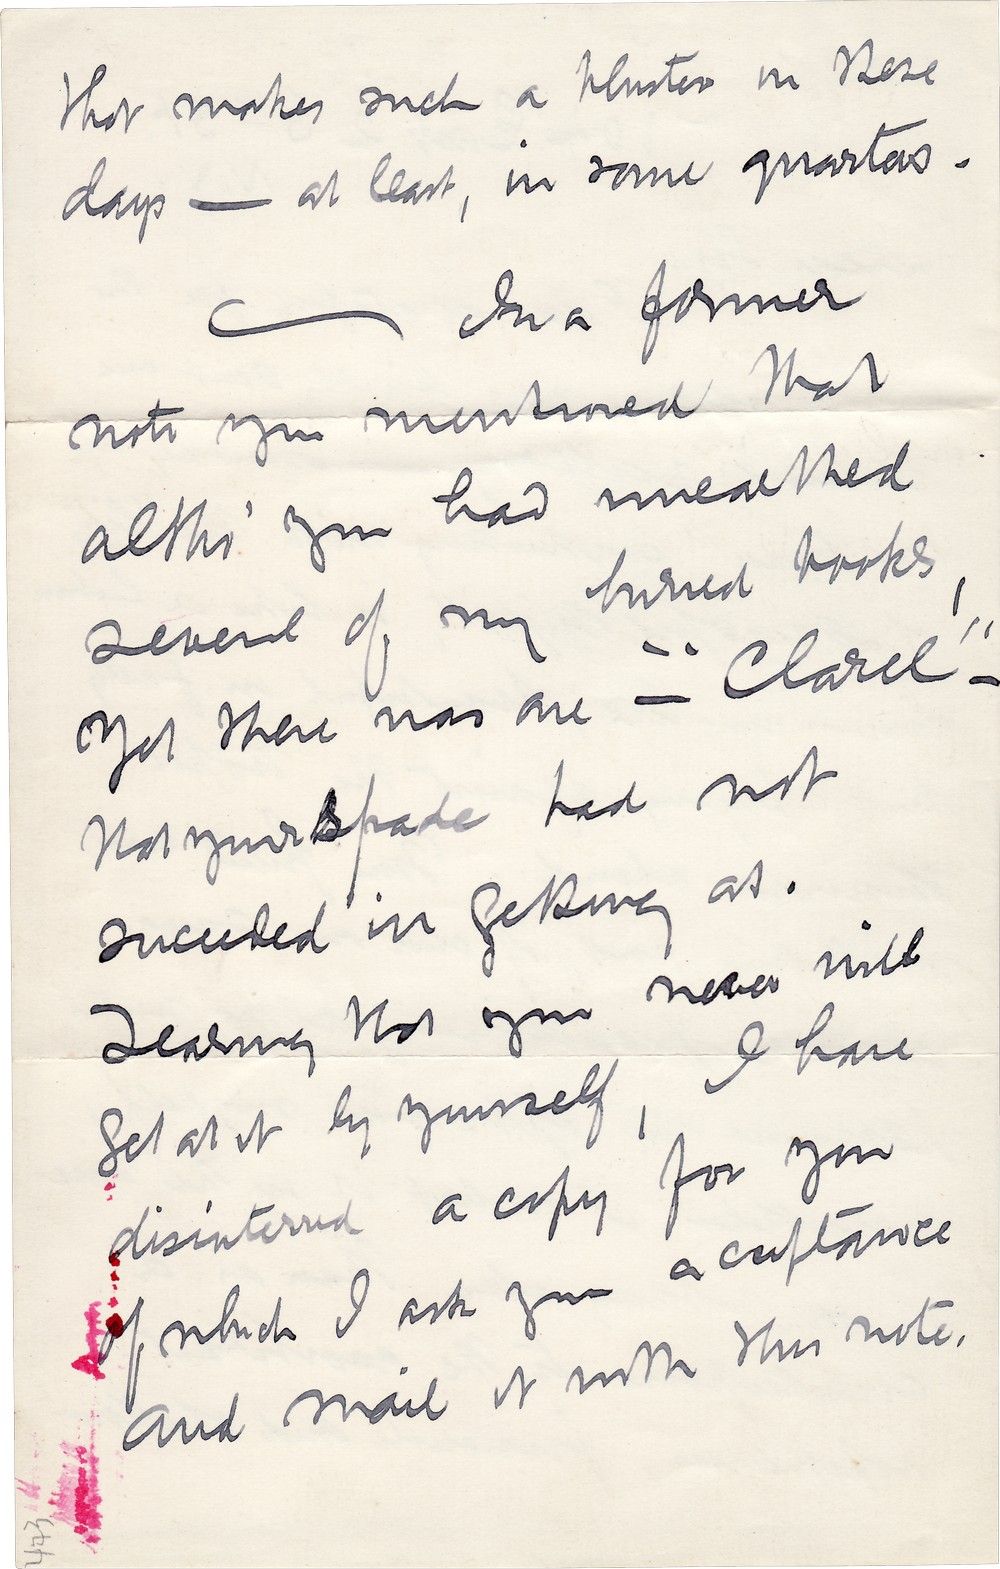 that makes such a bluster in these
days — at least, in some quarters.
— In a former
note you mentioned that
altho' you had unearthed
several of my buried books,
yet there was one — "Clarel" —
that your spade had not
succeeded in getting at.
Fearing that you never will
get at it by yourself, I have
disinterred a copy for you
of which I ask your acceptance
and mail it with this note.
443